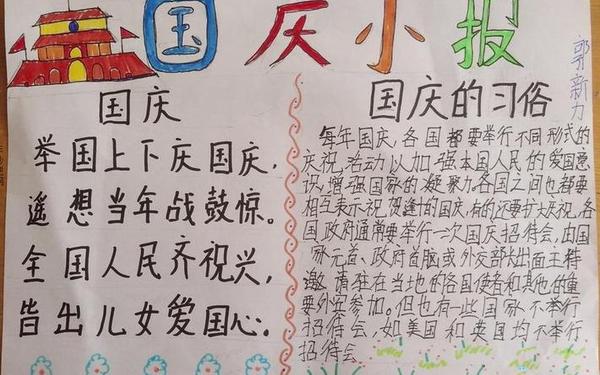 国庆小报
郭新力
国庆
举国上下庆国庆，
遥想当年战鼓惊。
全国人民齐祝兴，
皆出儿女爱国心。
国庆的习俗
每年国庆，各国都要举行不同形式的
庆祝活动以加强本国人民的爱国意
识，增强国家的凝聚力各国之间也都要
相互表示祝贺逢十的国庆，有的还要扩大庆祝，各
国政府通常要举行一次国庆招待会，由国
家元首、政府首脑或外交部长出面主持
邀请驻在当地的各国使者和其他的重
要外宾参加。但也有一些国家不举行
招待会，如美国和英国均不举行
招待会